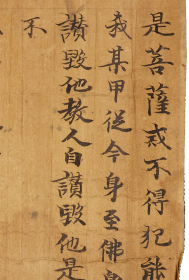 是菩薩戒不得犯能
我某甲從今身至佛身
讃毀他教人自讃毀他是
不